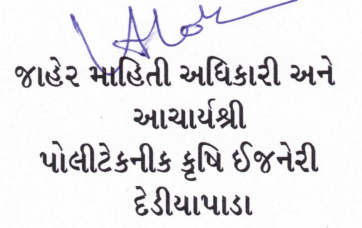 જાહેર માહિતી અધિકારી અને
આચાર્યશ્રી
પોલીટેકનીક કૃષિ ઈજનેરી
દેડીયાપાડા